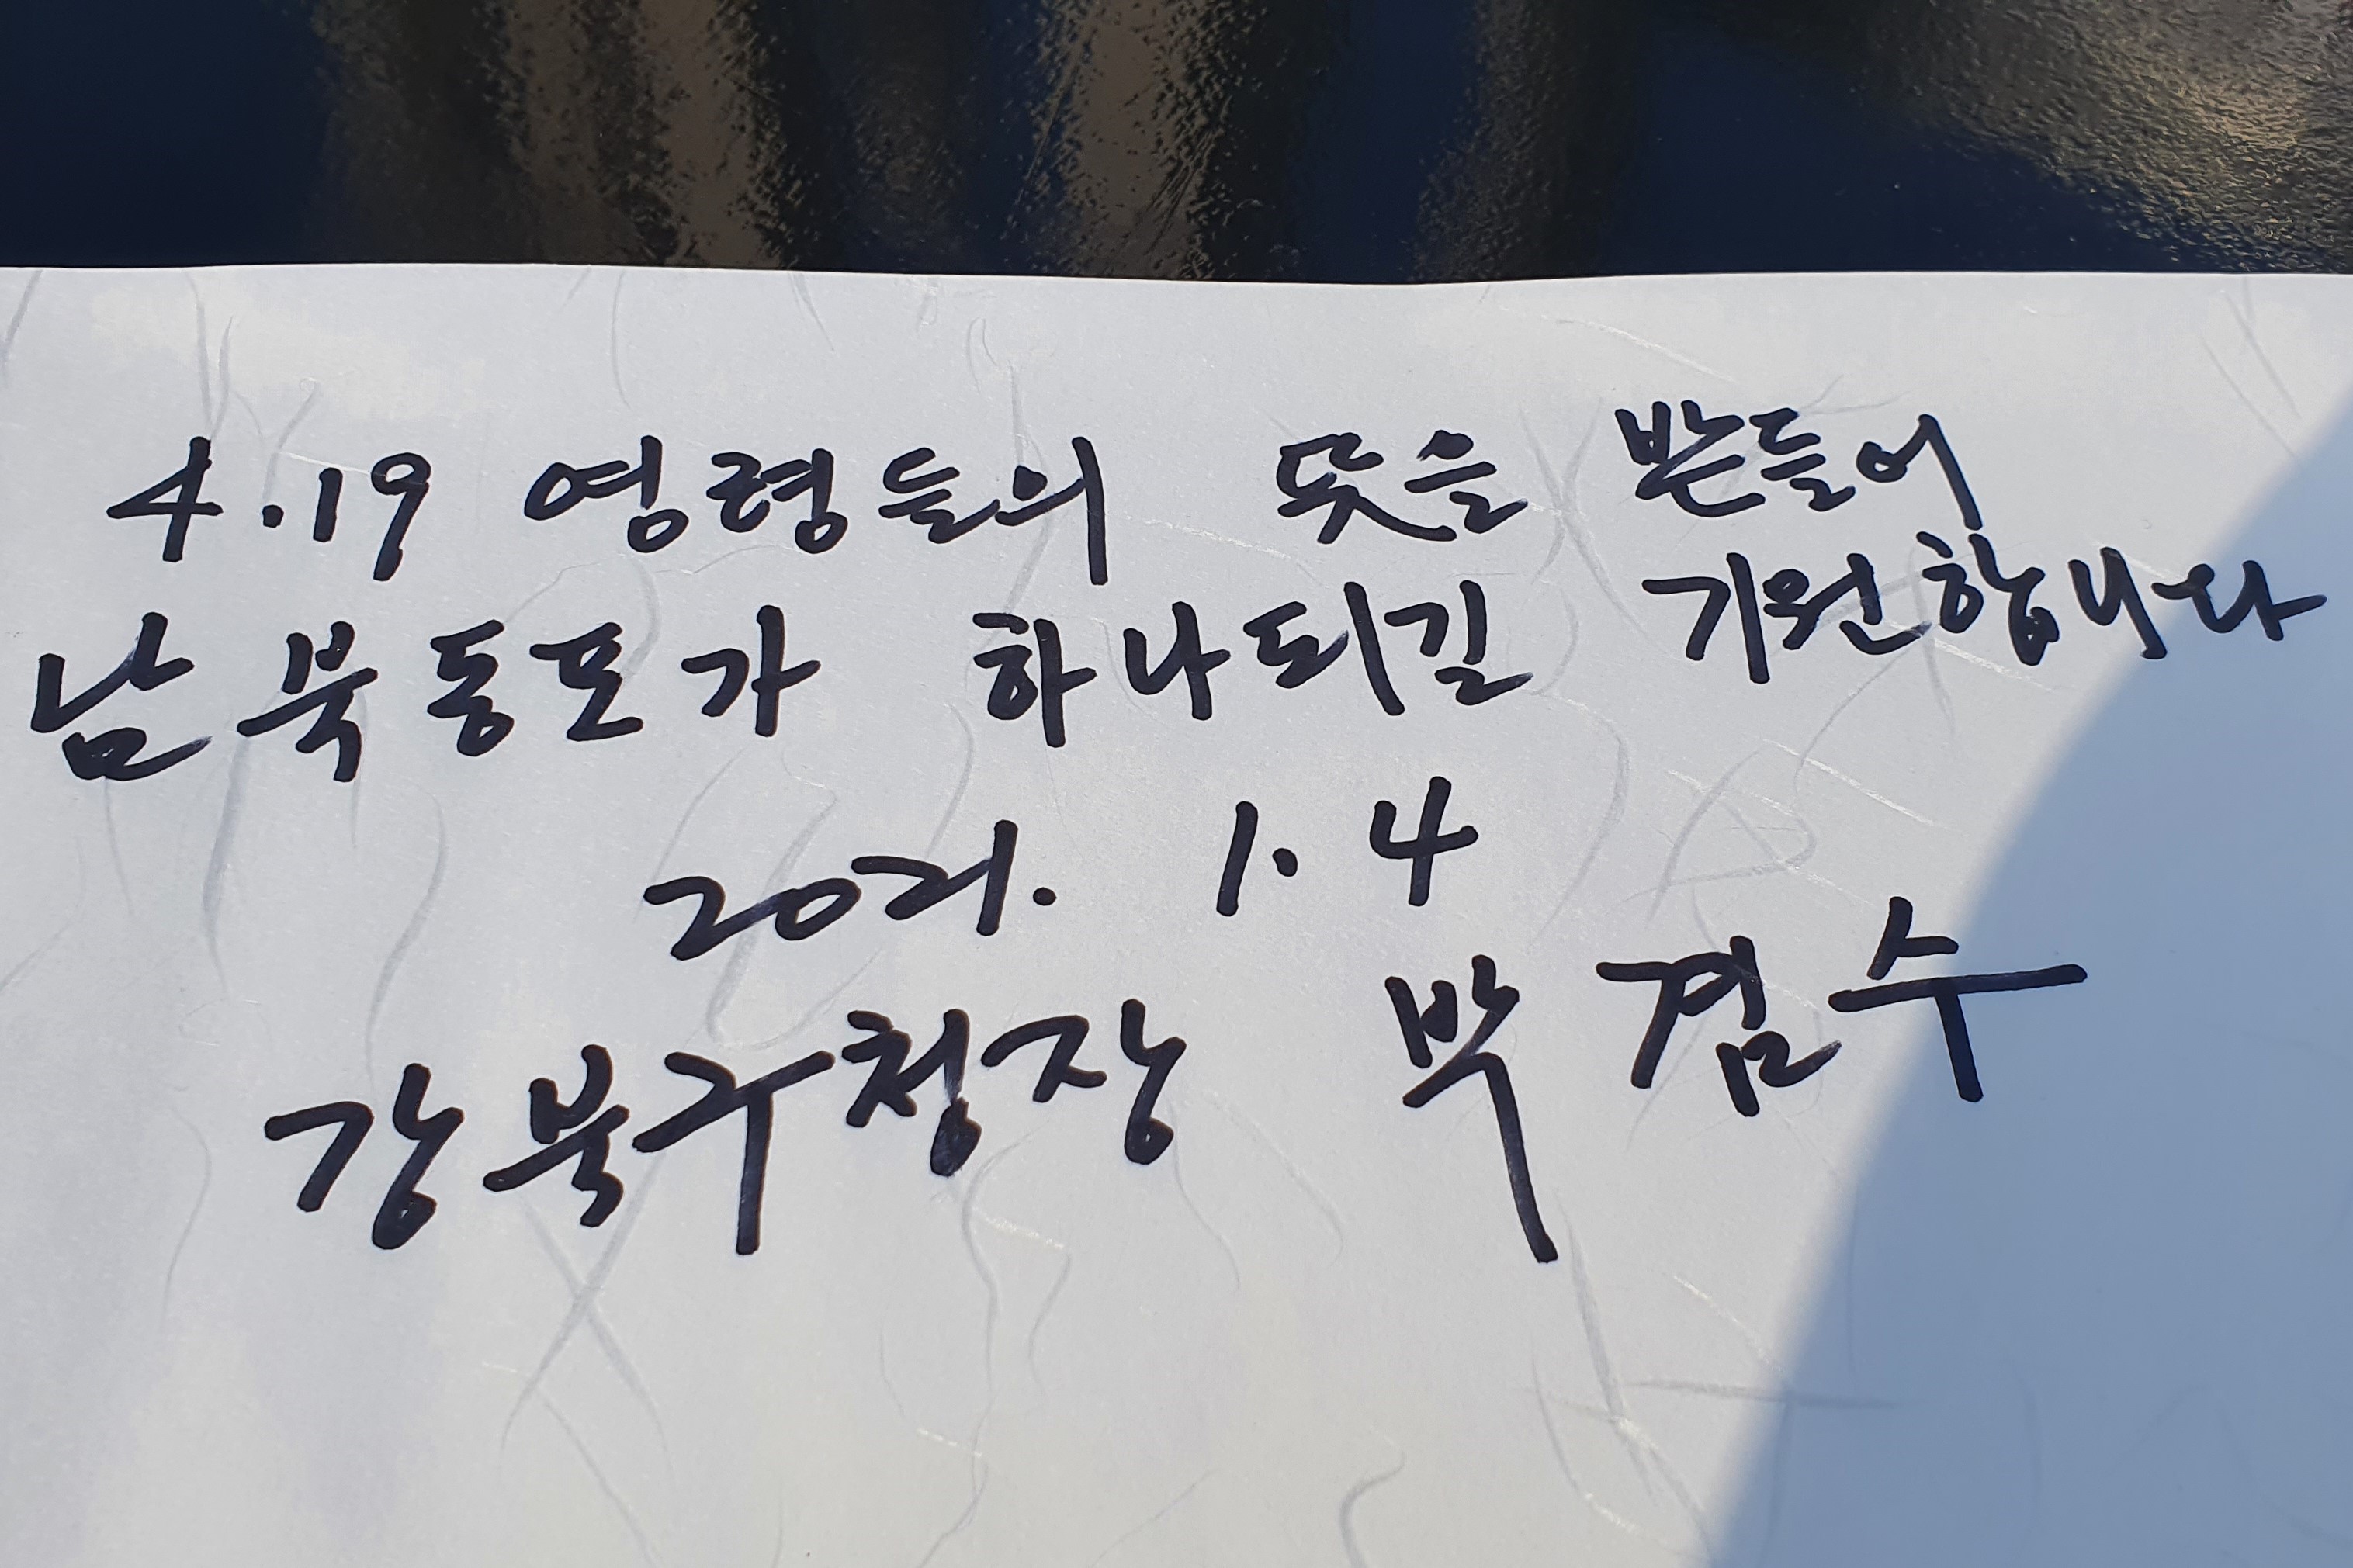 4.19 영령들의 뜻을 받들어
남북동포가 하나되길 기원합니다
2021. 1. 4
강북구청장 박겸수